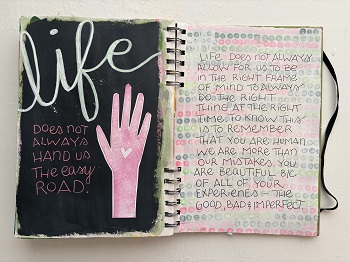 life
DOES NOT
ALWAYS
HAND US
THE easy
ROAD!
LIFE DOES NOT ALWAYS
ALLOW FOR US TO BE
IN THE RIGHT FRAME
OF MIND TO ALWAYS
DO THE RIGHT
THING AT THE RIGHT
TIME. TO KNOW THIS
IS TO REMEMBER
THAT YOU ARE HUMAN
WE ARE MORE THAN
OUR MISTAKES. YOU
ARE BEAUTIFUL B/C
OF ALL OF YOUR
EXPERIENCES — THE
GOOD, BAD & IMPERFECT.